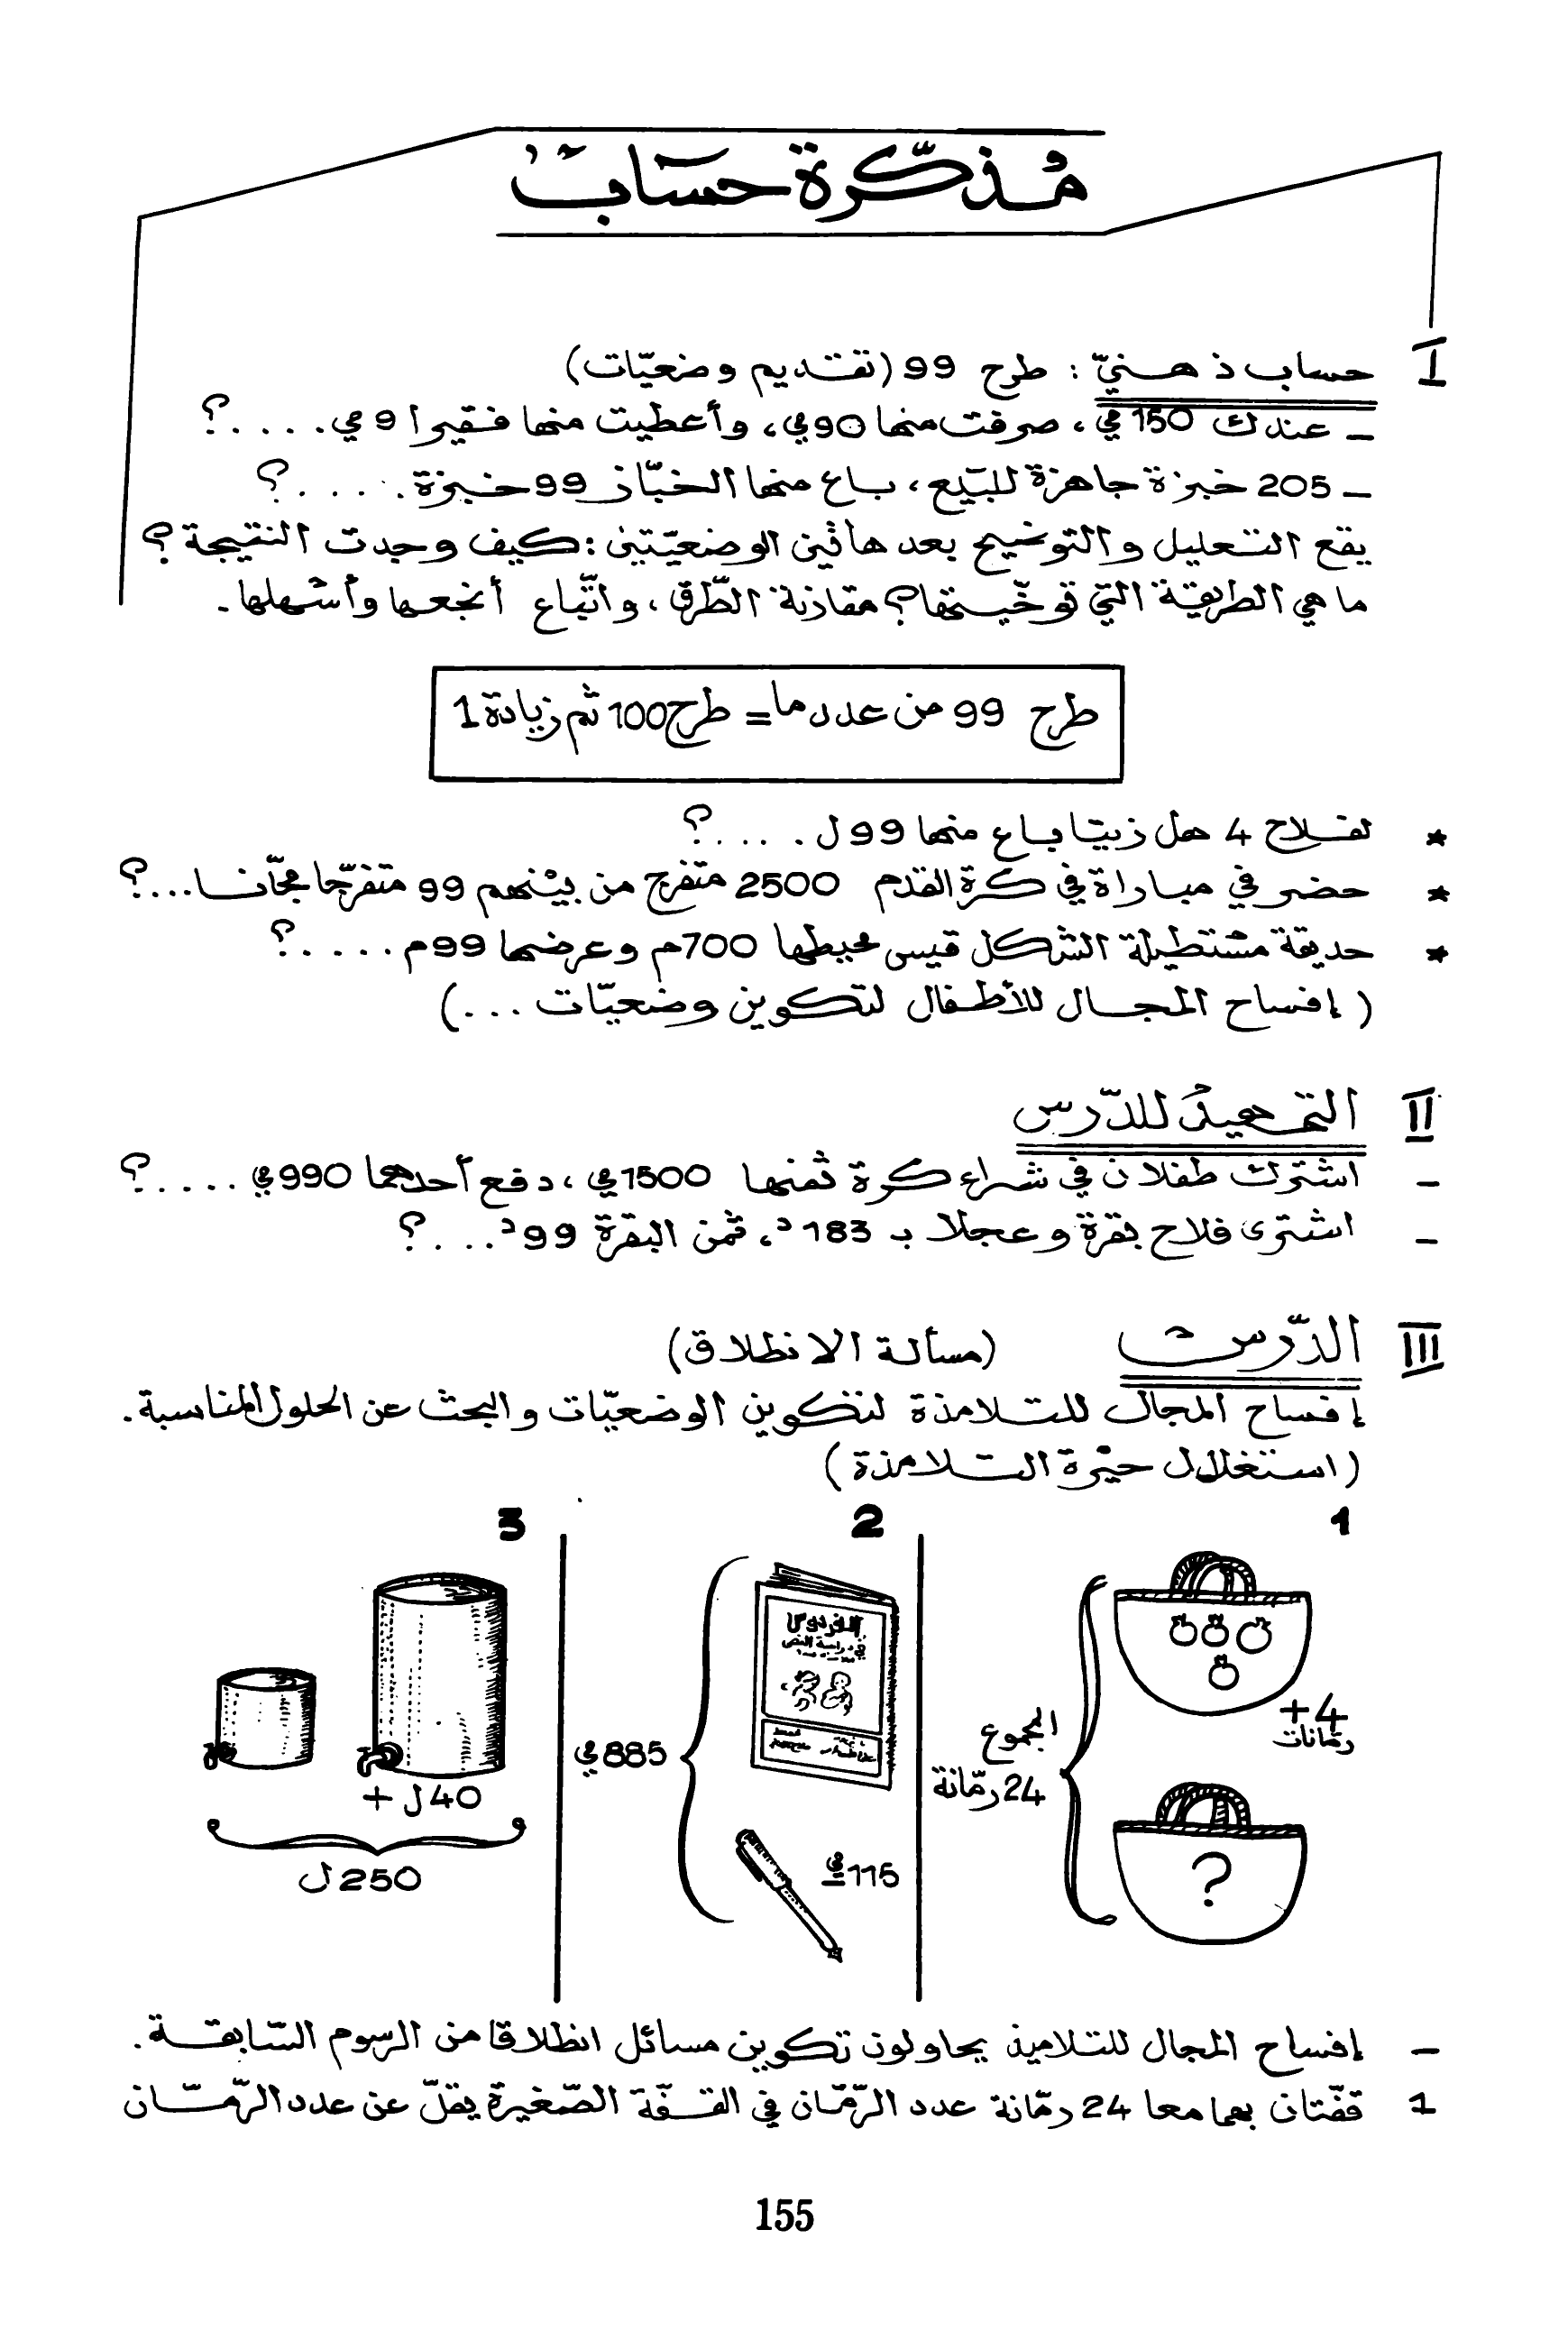 مُذكّرة حسَاب
I حساب ذهنيّ : طرح 99 (تقديم وضعيّات)
- عندك 150 مي ، صرفت منها 90 مي ، وأعطيت منها فقيرا 9 مي . . . . ؟
- 205 خبزة جاهزة للبيع ، باع منها الخبّاز 99 خبزة . . . . ؟
يقع التعليل والتوضيح بعد هاتين الوضعيّتين : كيف وجدت النتيجة ؟
ما هي الطريقة التي توخّيتها ؟ مقارنة الطّرق ، واتّباع أنجعها وأسهلها .
طرح 99 من عدد ما = طرح 100 ثم زيادة 1
* لفلاح 4 هل زيتا باع منها 99 ل . . . . ؟
* حضر في مباراة في كرة القدم 2500 متفرج من بينهم 99 متفرّجا مجّانا ... ؟
* حديقة مستطيلة الشكل قيس محيطها 700 م وعرضها 99 م . . . . . ؟
( إفساح المجال للأطفال لتكوين وضعيّات ... )
II التمهيد للدّرس
- اشترك طفلان في شراء كرة ثمنها 1500 مي ، دفع أحدهما 990 مي . . . . . ؟
- اشترى فلاح بقرة وعجلا بـ 183 د ، ثمن البقرة 99 د . . . . ؟
III الدّرس (مسألة الانطلاق)
إفساح المجال للتلامذة لتكوين الوضعيّات والبحث عن الحلول المناسبة .
( استغلال حيرة التلامذة )
1
+4
رمّانات
المجموع
24 رمّانة
?
2
الفردوس
في دراسة النص
885 مي
115 مي
3
+ 40 ل
250 ل
- إفساح المجال للتلاميذ يحاولون تكوين مسائل انطلاقا من الرسوم السّابقة .
1 قفّتان بهما معا 24 رمّانة عدد الرّمّان في القفّة الصّغيرة يقلّ عن عدد الرّمّان
155